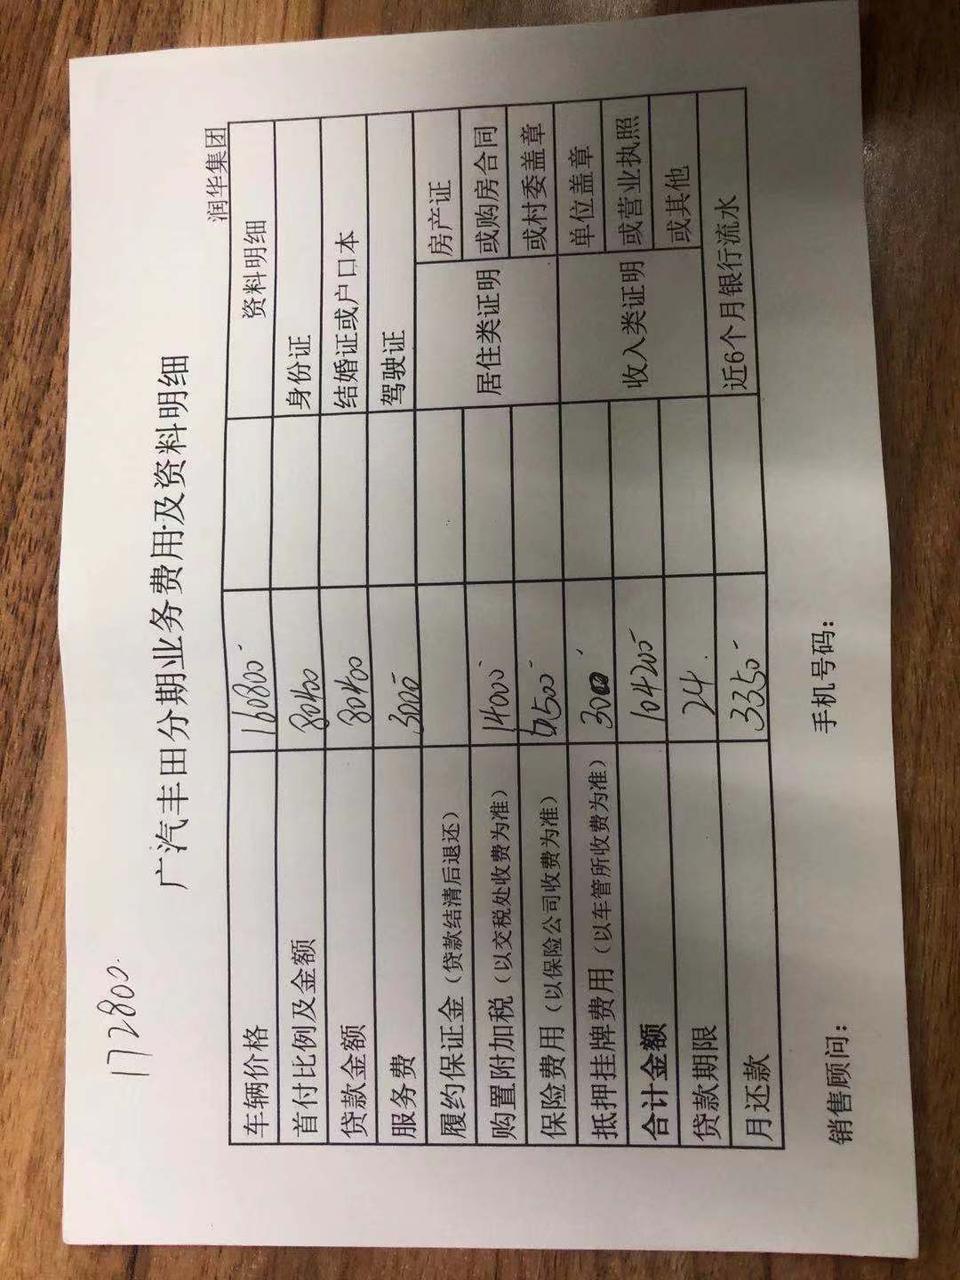 172800.
广汽丰田分期业务费用及资料明细
润华集团
车辆价格 160800- 资料明细
首付比例及金额 80400 身份证
贷款金额 80400 结婚证或户口本
服务费 3000- 驾驶证
履约保证金（贷款结清后退还） 居住类证明 房产证
购置附加税（以交税处收费为准） 14000 或购房合同
保险费用（以保险公司收费为准） 6500- 或村委盖章
抵押挂牌费用（以车管所收费为准） 300 收入类证明 单位盖章
合计金额 104200- 或营业执照
贷款期限 24. 或其他
月还款 3350- 近6个月银行流水
销售顾问： 手机号码：